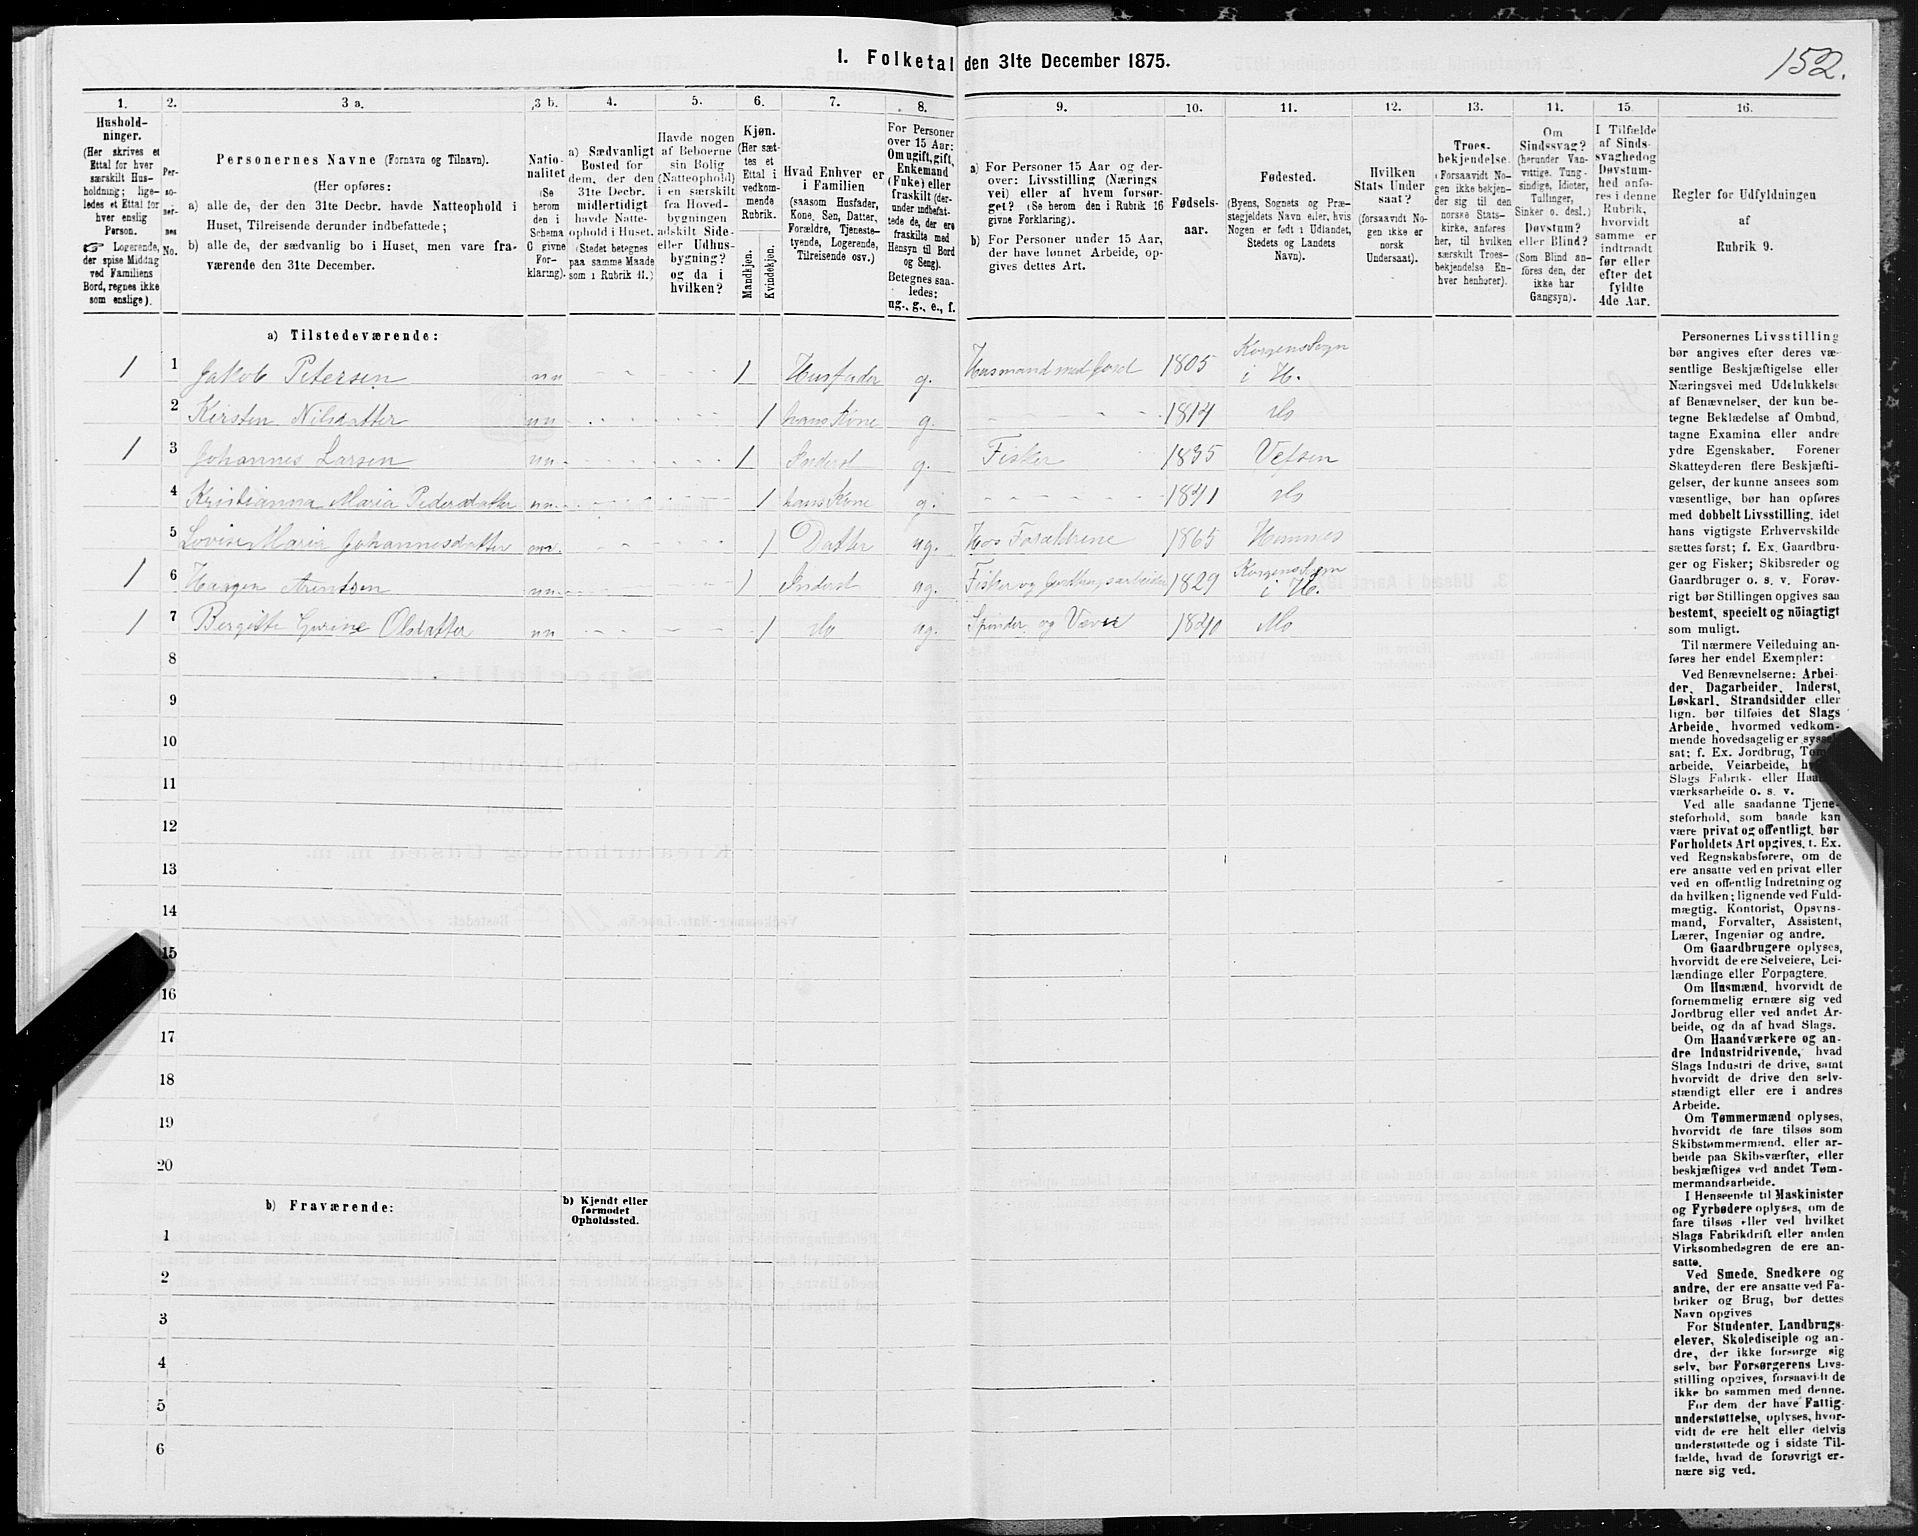 I. Folketal den 31te December 1875.
152.
1.
2.
3 a.
3 b.
4.
5.
6.
7.
8.
9.
10.
11.
12.
13.
14.
15.
16.
Hushold-
ninger.
(Her skrives et
Ettal for hver
særskilt Hus-
holdning; lige-
ledes et Ettal for
hver enslig
Person.
☞ Logerende,
der spise Middag
ved Familiens
Bord, regnes ikke
som enslige).
Per-
so-
ner-
nes
No.
Personernes Navne (Fornavn og Tilnavn).
(Her opføres:
a) alle de, der den 31te Decbr. havde Natteophold i
Huset, Tilreisende derunder indbefattede;
b) alle de, der sædvanlig bo i Huset, men vare fra-
værende den 31te December.
Natio-
nalitet
(Se
herom
den i
Schema
C givne
For-
klaring).
a) Sædvanligt
Bosted for
dem, der den
31te Decbr.
midlertidigt
havde Natte-
ophold i Huset.
(Stedet betegnes
paa samme Maade
som i Rubrik 11.)
Havde nogen
af Beboerne
sin Bolig
(Natteophold)
i en særskilt
fra Hoved-
bygningen
adskilt Side-
eller Udhus-
bygning?
og da i
hvilken?
Kjøn.
(Her sæt-
tes et
Ettal i
vedkom-
mende
Rubrik.
Mandkjøn.
Kvindekjøn.
Hvad Enhver er
i Familien
(saasom Husfader,
Kone, Søn, Datter,
Forældre, Tjeneste-
tyende, Logerende,
Tilreisende osv.)
For Personer
over 15 Aar:
Om ugift, gift,
Enkemand
(Enke) eller
fraskilt (der-
under indbefat-
tede de, der ere
fraskilte med
Hensyn til Bord
og Seng).
Betegnes saa-
ledes:
ug., g., e., f.
a) For Personer 15 Aar og der-
over: Livsstilling (Nærings
vei) eller af hvem forsør-
get? (Se herom den i Rubrik 16
givne Forklaring).
b) For Personer under 15 Aar,
der have lønnet Arbeide, op-
gives dettes Art.
Fødsels-
aar.
Fødested.
(Byens, Sognets og Præ-
stegjeldets Navn eller, hvis
Nogen er født i Udlandet,
Stedets og Landets
Navn).
Hvilken
Stats Under
saat?
(forsaavidt No-
gen ikke er
norsk
Undersaat).
Troes-
bekjendelse.
(Forsaavidt No-
gen ikke bekjen-
der sig til den
norske Stats-
kirke, anføres
her, til hvilken
særskilt Troes-
bekjendelse En-
hver henhører).
Om
Sindssvag?
(herunder Van-
vittige, Tung-
sindige, Idioter,
Tullinger,
Sinker o. desl.)
Døvstum?
eller Blind?
(Som Blind an-
føres den, der
ikke har
Gangsyn).
I Tilfælde
af Sinds-
svaghed og
Døvstum-
hed anfø-
res i denne
Rubrik,
hvorvidt
samme er
indtraadt
før eller
efter det
fyldte
4de Aar.
Regler for Udfyldningen
af
Rubrik 9.
a) Tilstedeværende:
1 1 Jakob Petersen nn - - - - - - 1 Husfader g. Husmand med Jord 1805 Korgens Sogn i H.
2 Kirsten Nilsdatter nn - - - - - - 1 hans Kone g. - - - - - - 1814 Mo
1 3 Johannes Larsen nn - - - - - - 1 Inderst g. Fisker 1835 Vefsen
4 Kristianna Maria Pedersdatter nn - - - - - - 1 hans Kone g. - - - - - - 1841 Mo
5 Lovise Maria Johannesdatter nn - - - - - - 1 Datter ug. Hos Forældrene 1865 Hemnes
1 6 Arentsen nn - - - - - - 1 Inderst ug. Fisker og Jordbrugsarbeider 1829 Korgens Sogn i H.
1 7 Bergitte Gurine Olsdatter nn - - - - - - 1 do ug. Spinder og Væver 1840 Mo
8
9
10
11
12
13
14
15
16
17
18
19
20
b) Fraværende:
b) Kjendt eller
formodet
Opholdssted.
1
2
3
4
5
6
Personernes Livsstilling
bør angives efter deres væ-
sentlige Beskjæftigelse eller
Næringsvei med Udelukkelse
af Benævnelser, der kun be-
tegne Beklædelse af Ombud,
tagne Examina eller andre
ydre Egenskaber. Forener
Skatteyderen flere Beskjæfti-
gelser, der kunne ansees som
væsentlige, bør han opføres
med dobbelt Livsstilling, idet
hans vigtigste Erhvervskilde
sættes først; f. Ex. Gaardbru-
ger og Fisker; Skibsreder og
Gaardbruger o. s. v. Forøv-
rigt bør Stillingen opgives saa
bestemt, specielt og nöiagtigt
som muligt.
Til nærmere Veiledning an-
føres her endel Exempler:
Ved Benævnelserne: Arbei-
der, Dagarbeider, Inderst,
Løskarl, Strandsidder eller
lign. bør tilføies det Slags
Arbeide, hvormed vedkom-
mende hovedsagelig er syssel-
sat; f. Ex. Jordbrug, Tømmer-
arbeide, Veiarbeide, hvad
Slags Fabrik- eller Haand-
værksarbeide o. s. v.
Ved alle saadanne Tjene-
steforhold, som baade kan
være privat og offentligt, bør
Forholdets Art opgives, t. Ex.
ved Regnskabsførere, om de
ere ansatte ved en privat eller
ved en offentlig Indretning og
da hvilken; lignende ved Fuld-
mægtig, Kontorist, Opsyns-
mand, Forvalter, Assistent,
Lærer, Ingeniør og andre.
Om Gaardbrugere oplyses,
hvorvidt de ere Selveiere, Lei-
lændinge eller Forpagtere.
Om Husmænd, hvorvidt de
fornemmelig ernære sig ved
Jordbrug eller ved andet Ar-
beide, og da af hvad Slags.
Om Haandværkere og an-
dre Industridrivende, hvad
Slags Industri de drive, samt
hvorvidt de drive den selv-
stændigt eller ere i andres
Arbeide.
Om Tømmermænd oplyses,
hvorvidt de fare tilsøs som
Skibstømmermænd, eller ar-
beide paa Skibsværfter, eller
beskjæftiges ved andet Tøm-
mermandsarbeide.
I Henseende til Maskinister
og Fyrbødere oplyses, om de
fare tilsøs eller ved hvilket
Slags Fabrikdrift eller anden
Virksomhedsgren de ere an-
satte.
Ved Smede, Snedkere og
andre, der ere ansatte ved Fa-
briker og Brug, bør dettes
Navn opgives
For Studenter, Landbrugs-
elever, Skoledisciple og an-
dre, der ikke forsørge sig
selv, bør Forsørgerens Livs-
stilling opgives, forsaavidt de
ikke bo sammen med denne.
For dem, der have Fattig-
understøttelse, oplyses, hvor-
vidt de ere helt eller delvis
understøttede og i sidste Til-
fælde, hvad de forøvrigt er-
nære sig ved.